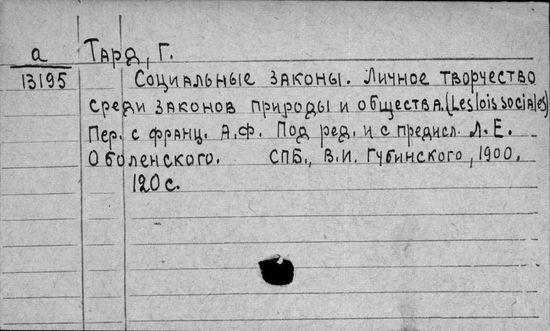 а Тард, Г.
13195 Социальные законы. Личное творчество
среди законов природы и общества. (Les lois sociales)
Пер. с франц. А.Ф. Под ред. и с предисл. Л.Е.
Оболенского. СПБ., В.И. Губинского, 1900.
120 с.